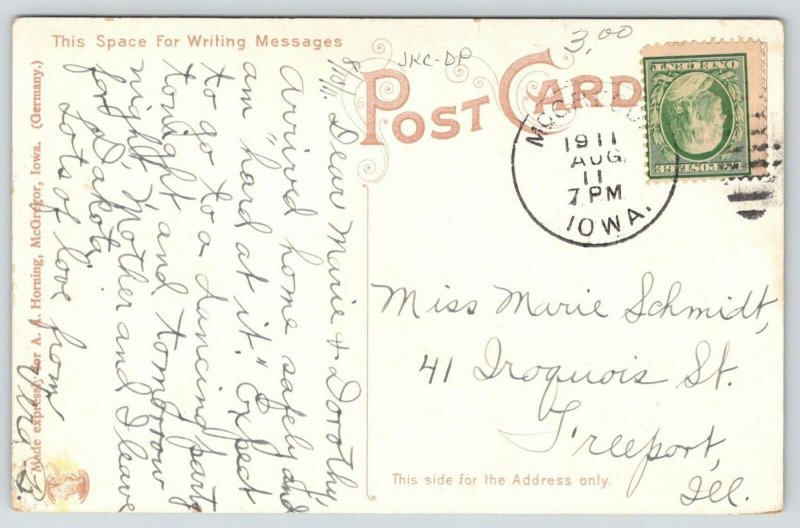 This Space For Writing Messages
POST CARD
JKC-DP
3.00
ONE CENT
U.S. POSTAGE
1911
AUG
11
7 PM
IOWA.
8/11/11. Dear Marie & Dorothy,
Arrived home safely and
am "hard at it." Expect
to go to a dancing party
tonight and tomorrow
night, Mother and I leave
for Dakota.
Lots of love from
Made expressly for A. A. Horning, McGregor, Iowa. (Germany.)
Miss Marie Schmidt,
41 Iroquois St.
Freeport,
Ill.
This side for the Address only.